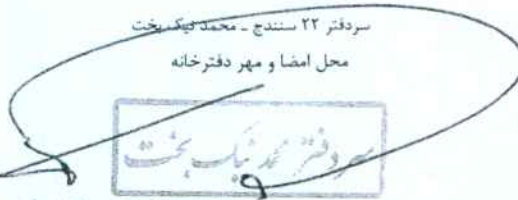 سردفتر ۲۲ سنندج ـ محمد نیک بخت
محل امضا و مهر دفترخانه
سردفتر محمد نیک بخت